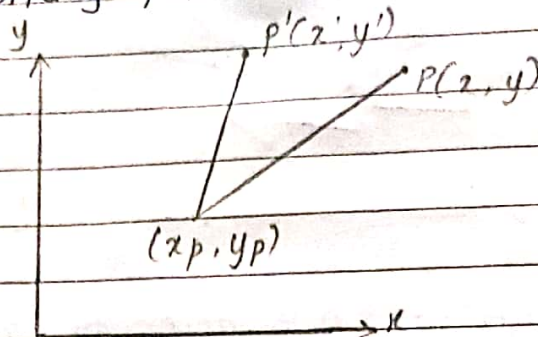 y
p'(x', y')
P(x, y)
(xp, yp)
x